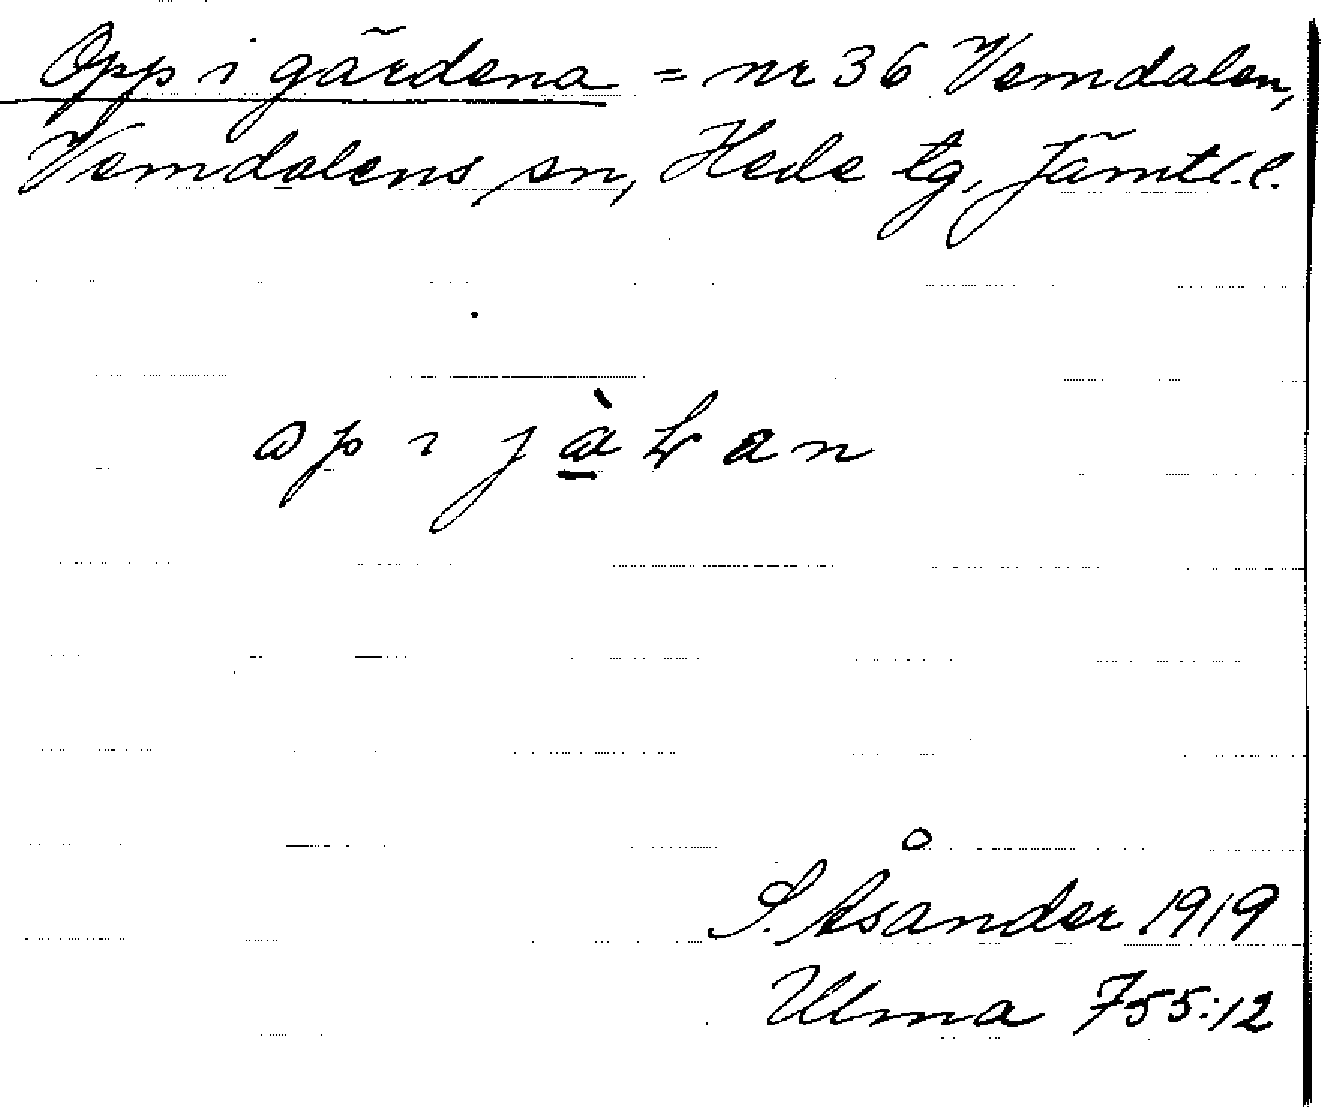 Opp i gärdena = nr 36 Vemdalen,
Vemdalens sn, Hede tg, Jämtl.l.
S. Åsander 1919
Ulma 755:12